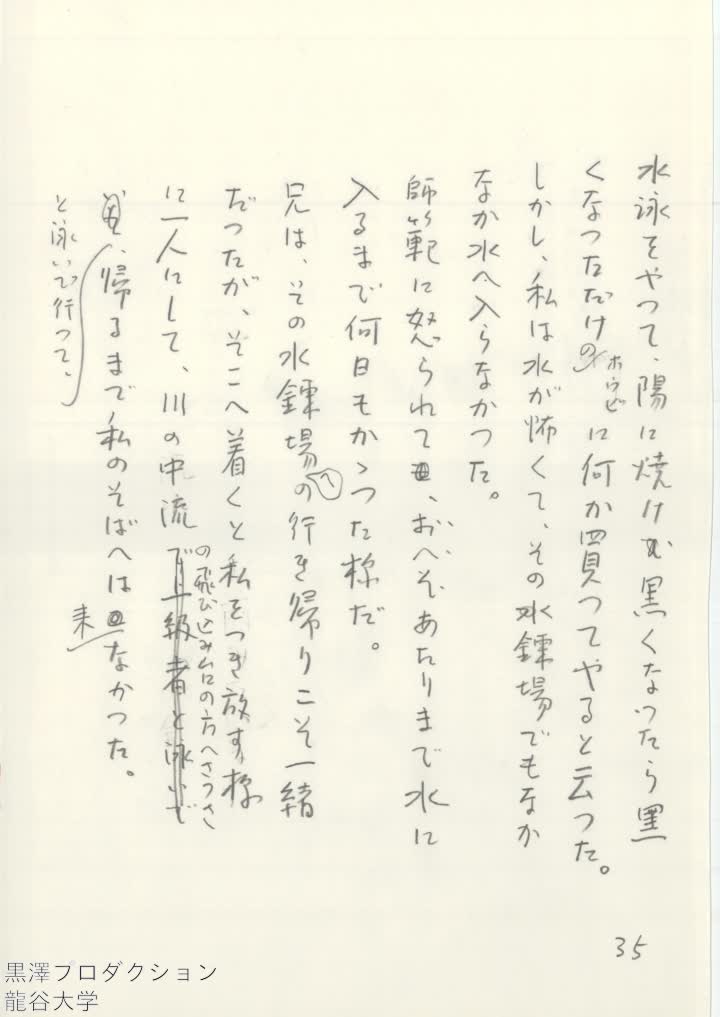 水泳をやつて、陽に焼け黒くなつたら黒
くなつただけのホウビに何か買つてやると云つた。
しかし、私は水が怖くて、その水錬場でもなか
なか水へ入らなかつた。
師範に怒られて、おへそあたりまで水に
入るまで何日もかゝつた様だ。
兄は、その水錬場への行き帰りこそ一緒
だつたが、そこへ着くと私をつき放す様
に一人にして、川の中流
の飛び込み台の方へさつさ
で上級者と泳いで
と泳いで行つて、
帰るまで私のそばへは来なかつた。
35
黒澤プロダクション
龍谷大学